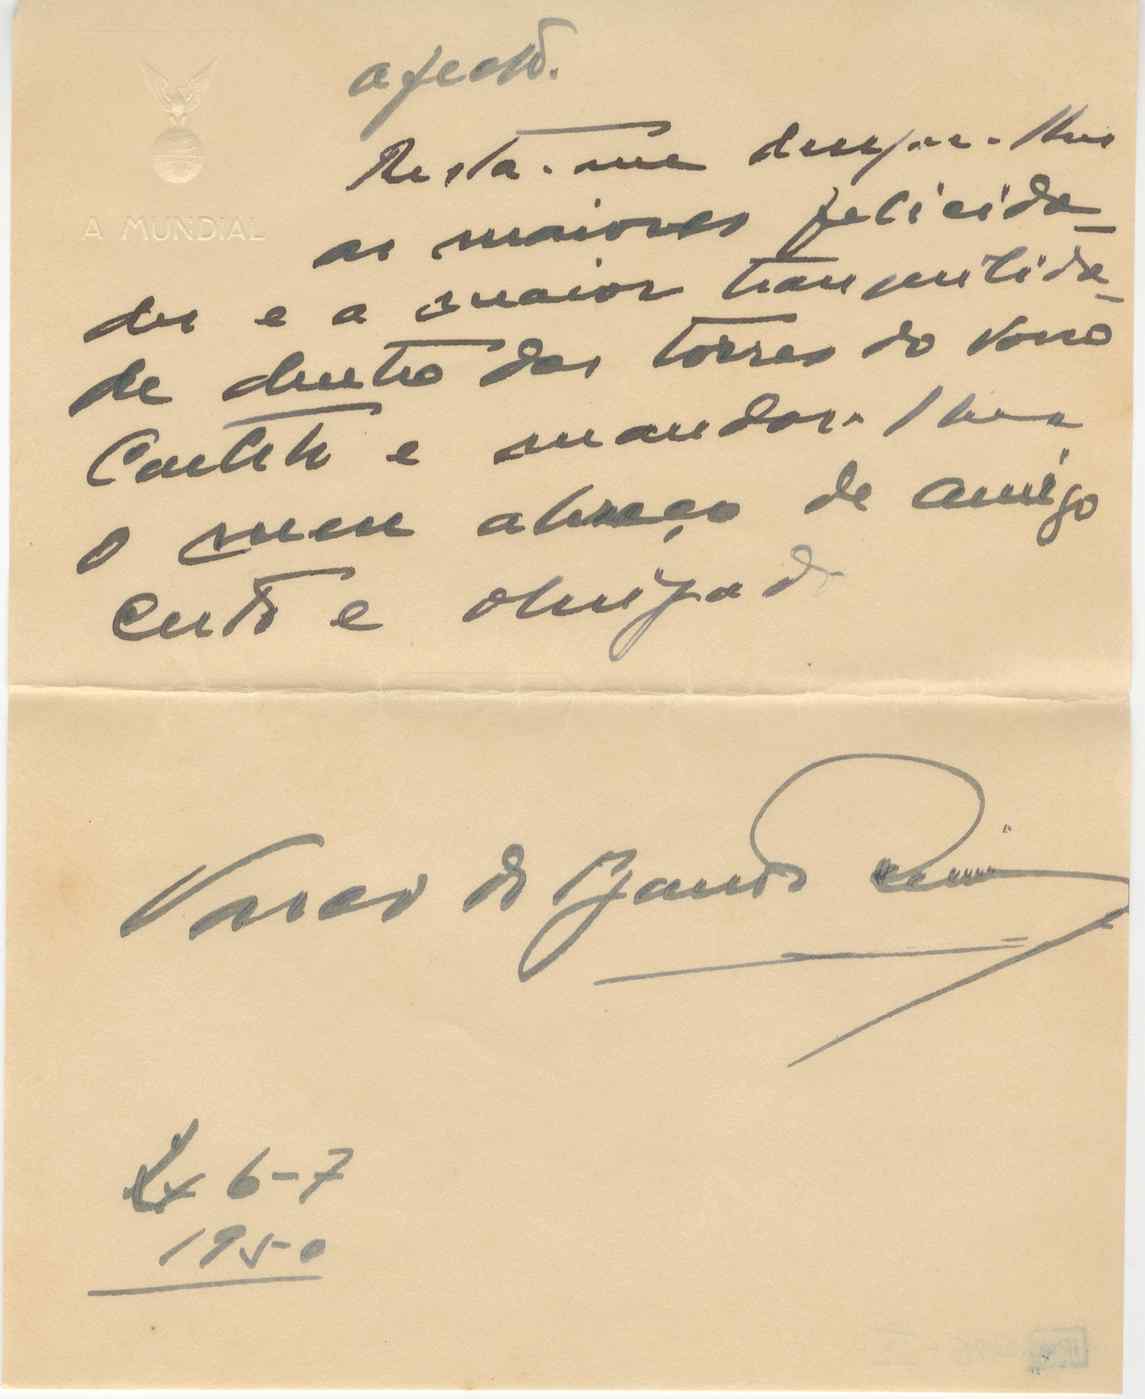 A MUNDIAL
afecto.
Resta-me desejar-lhes
as maiores felicida-
des e a maior tranquilida-
de dentro das torres do vosso
Castelo e mandar-lhes
o meu abraço de amigo
certo e obrigado
Vasco de
Lx 6-7
1950